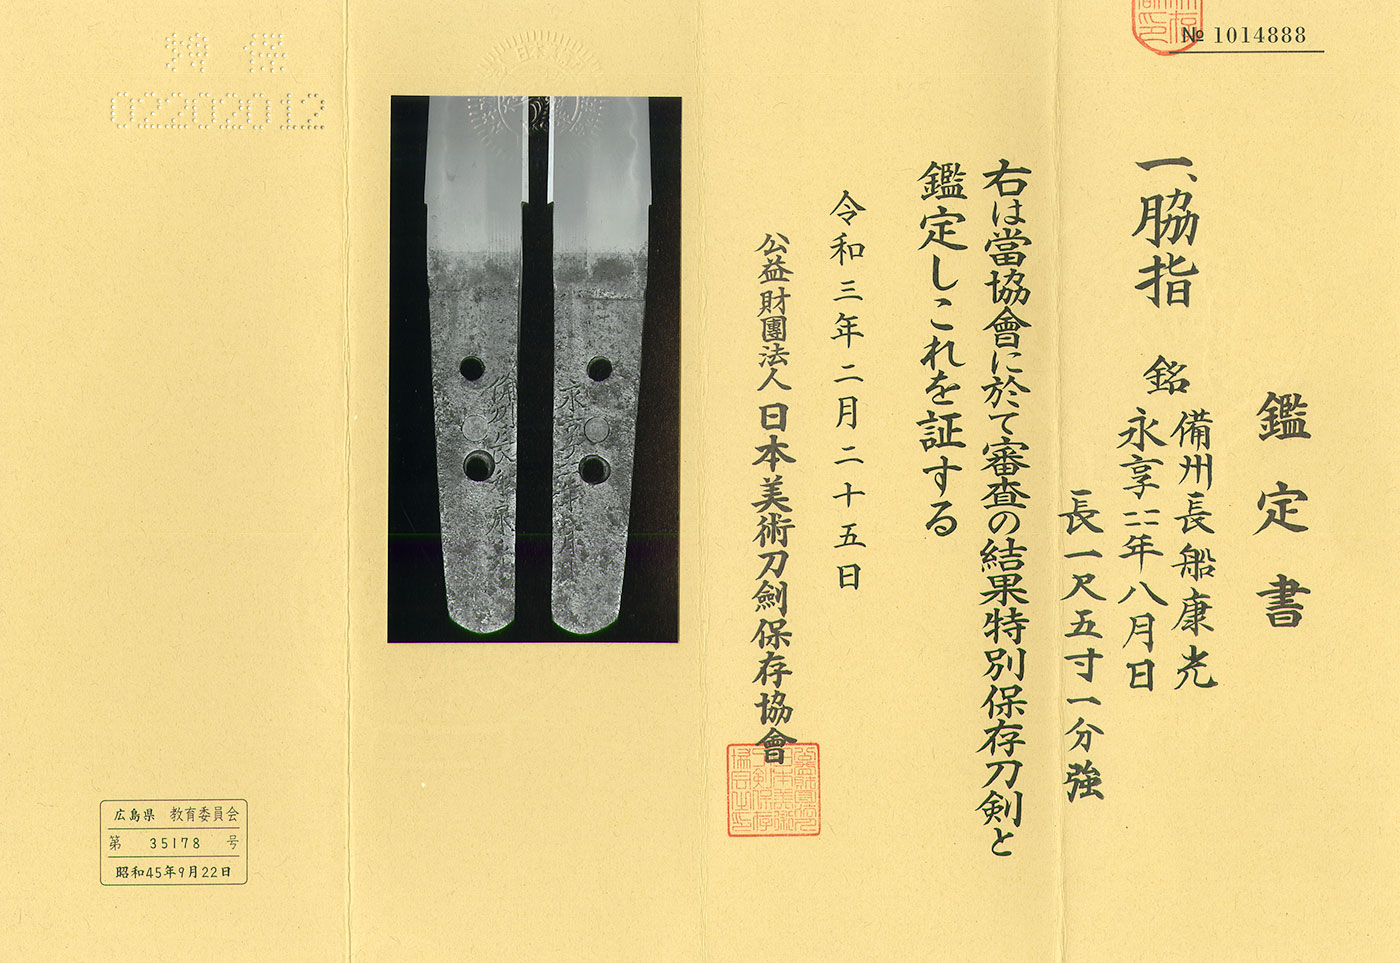 № 1014888
鑑定書
一、脇指 銘 備州長船康光
永享二二年八月日
長一尺五寸一分強
右は當協會に於て審査の結果特別保存刀剣と
鑑定しこれを証する
令和三年二月二十五日
公益財團法人日本美術刀劍保存協會
特保
02202012
広島県 教育委員会
第 35178 号
昭和45年9月22日